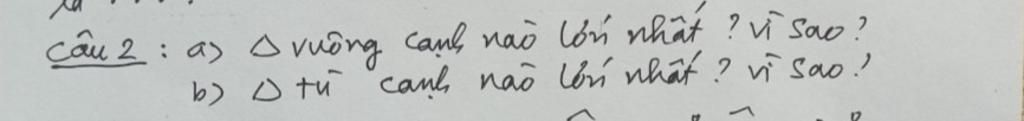 Câu 2 : a) Δ vuông cạnh nào lớn nhất ? vì sao ?
b) Δ tù cạnh nào lớn nhất ? vì sao ?